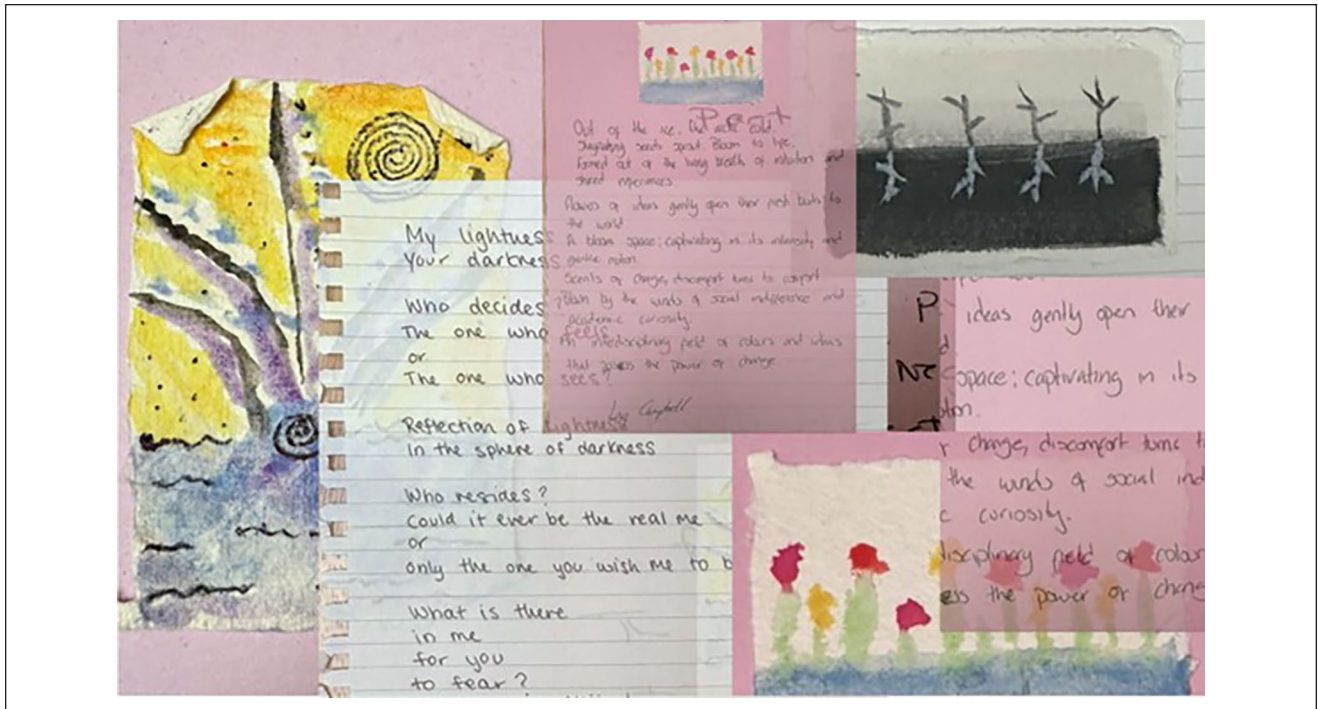 My lightness
Your darkness
Who decides?
The one who feels
or
The one who sees?
Reflection of lightness
In the sphere of darkness
Who resides?
Could it ever be the real me
or
only the one you wish me to b
What is there
in me
for you
to fear?
Out of the ice, the cold.
seeds sprout. Bloom to life.
Formed out of the living breath of and
shared experiences
Flowers of ideas gently open their buds to
the world
A bloom space; captivating in its intensity and
gentle motion.
Scents of change, discomfort turns to comfort
by the winds of social indifference and
academic curiosity.
An interdisciplinary field of colours and ideas
that the power of change
Campbell
P
ideas gently open their
space; captivating in its
change, discomfort turns t
the winds of social ind
c curiosity.
disciplinary field of colour
ess the power of change